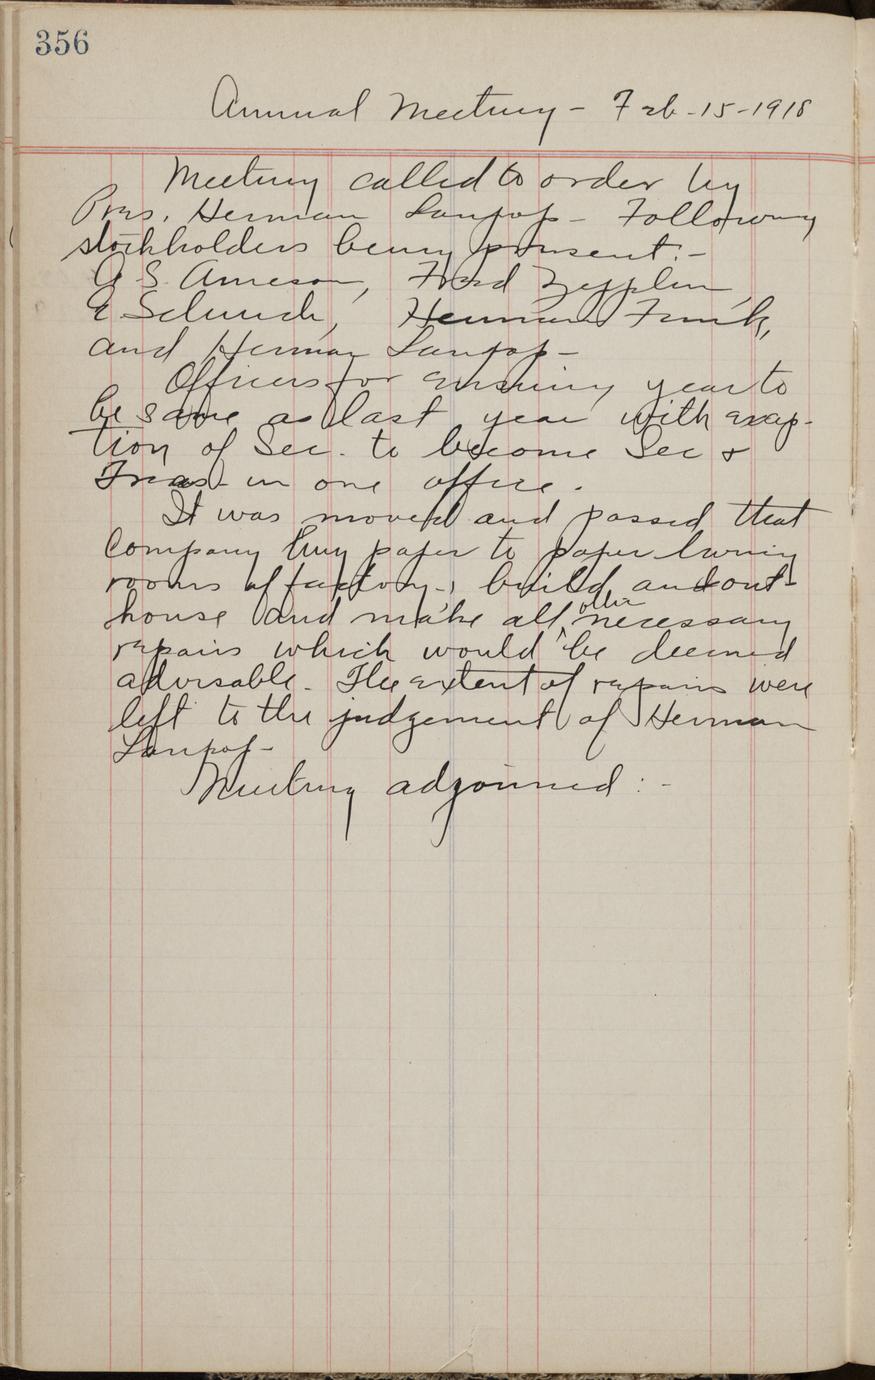 356
Annual Meeting - Feb-15-1918
Meeting called to order by
Pres. Herman Lanpop- Following
stockholders being present:-
A S. Arneson, Fred Zepplin,
E Schunck, Herman Funk,
and Herman Lanpop-
Officers for ensuing year to
be same as last year with excep-
tion of Sec. to become Sec &
Treas- in one office.
It was moved and passed that
Company buy paper to paper living
rooms of factory, build an out-
house and make all ^other necessary
repairs which would be deemed
advisable. The extent of repairs were
left to the judgement of Herman
Lanpop-
Meeting adjourned:-